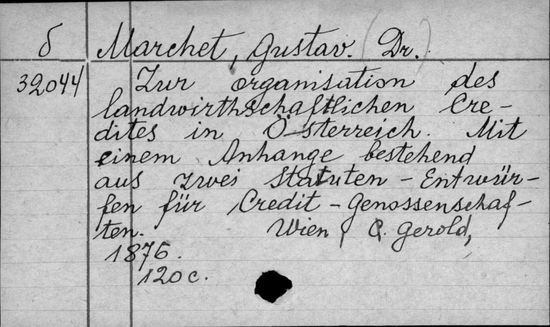 δ Marchet, Gustav. (Dr.)
32044 Zur organisation des
landwirthschaftlichen Cre-
dites in Österreich. Mit
einem Anhange bestehend
aus zwei Statuten-Entwür-
fen für Credit-Genossenschaf-
ten. Wien, C. Gerold,
1876.
120 c.